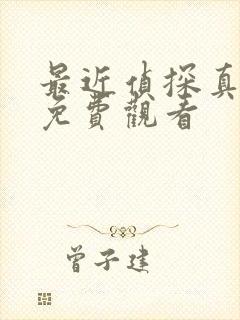 最近偵探真
免費觀看
曾子建